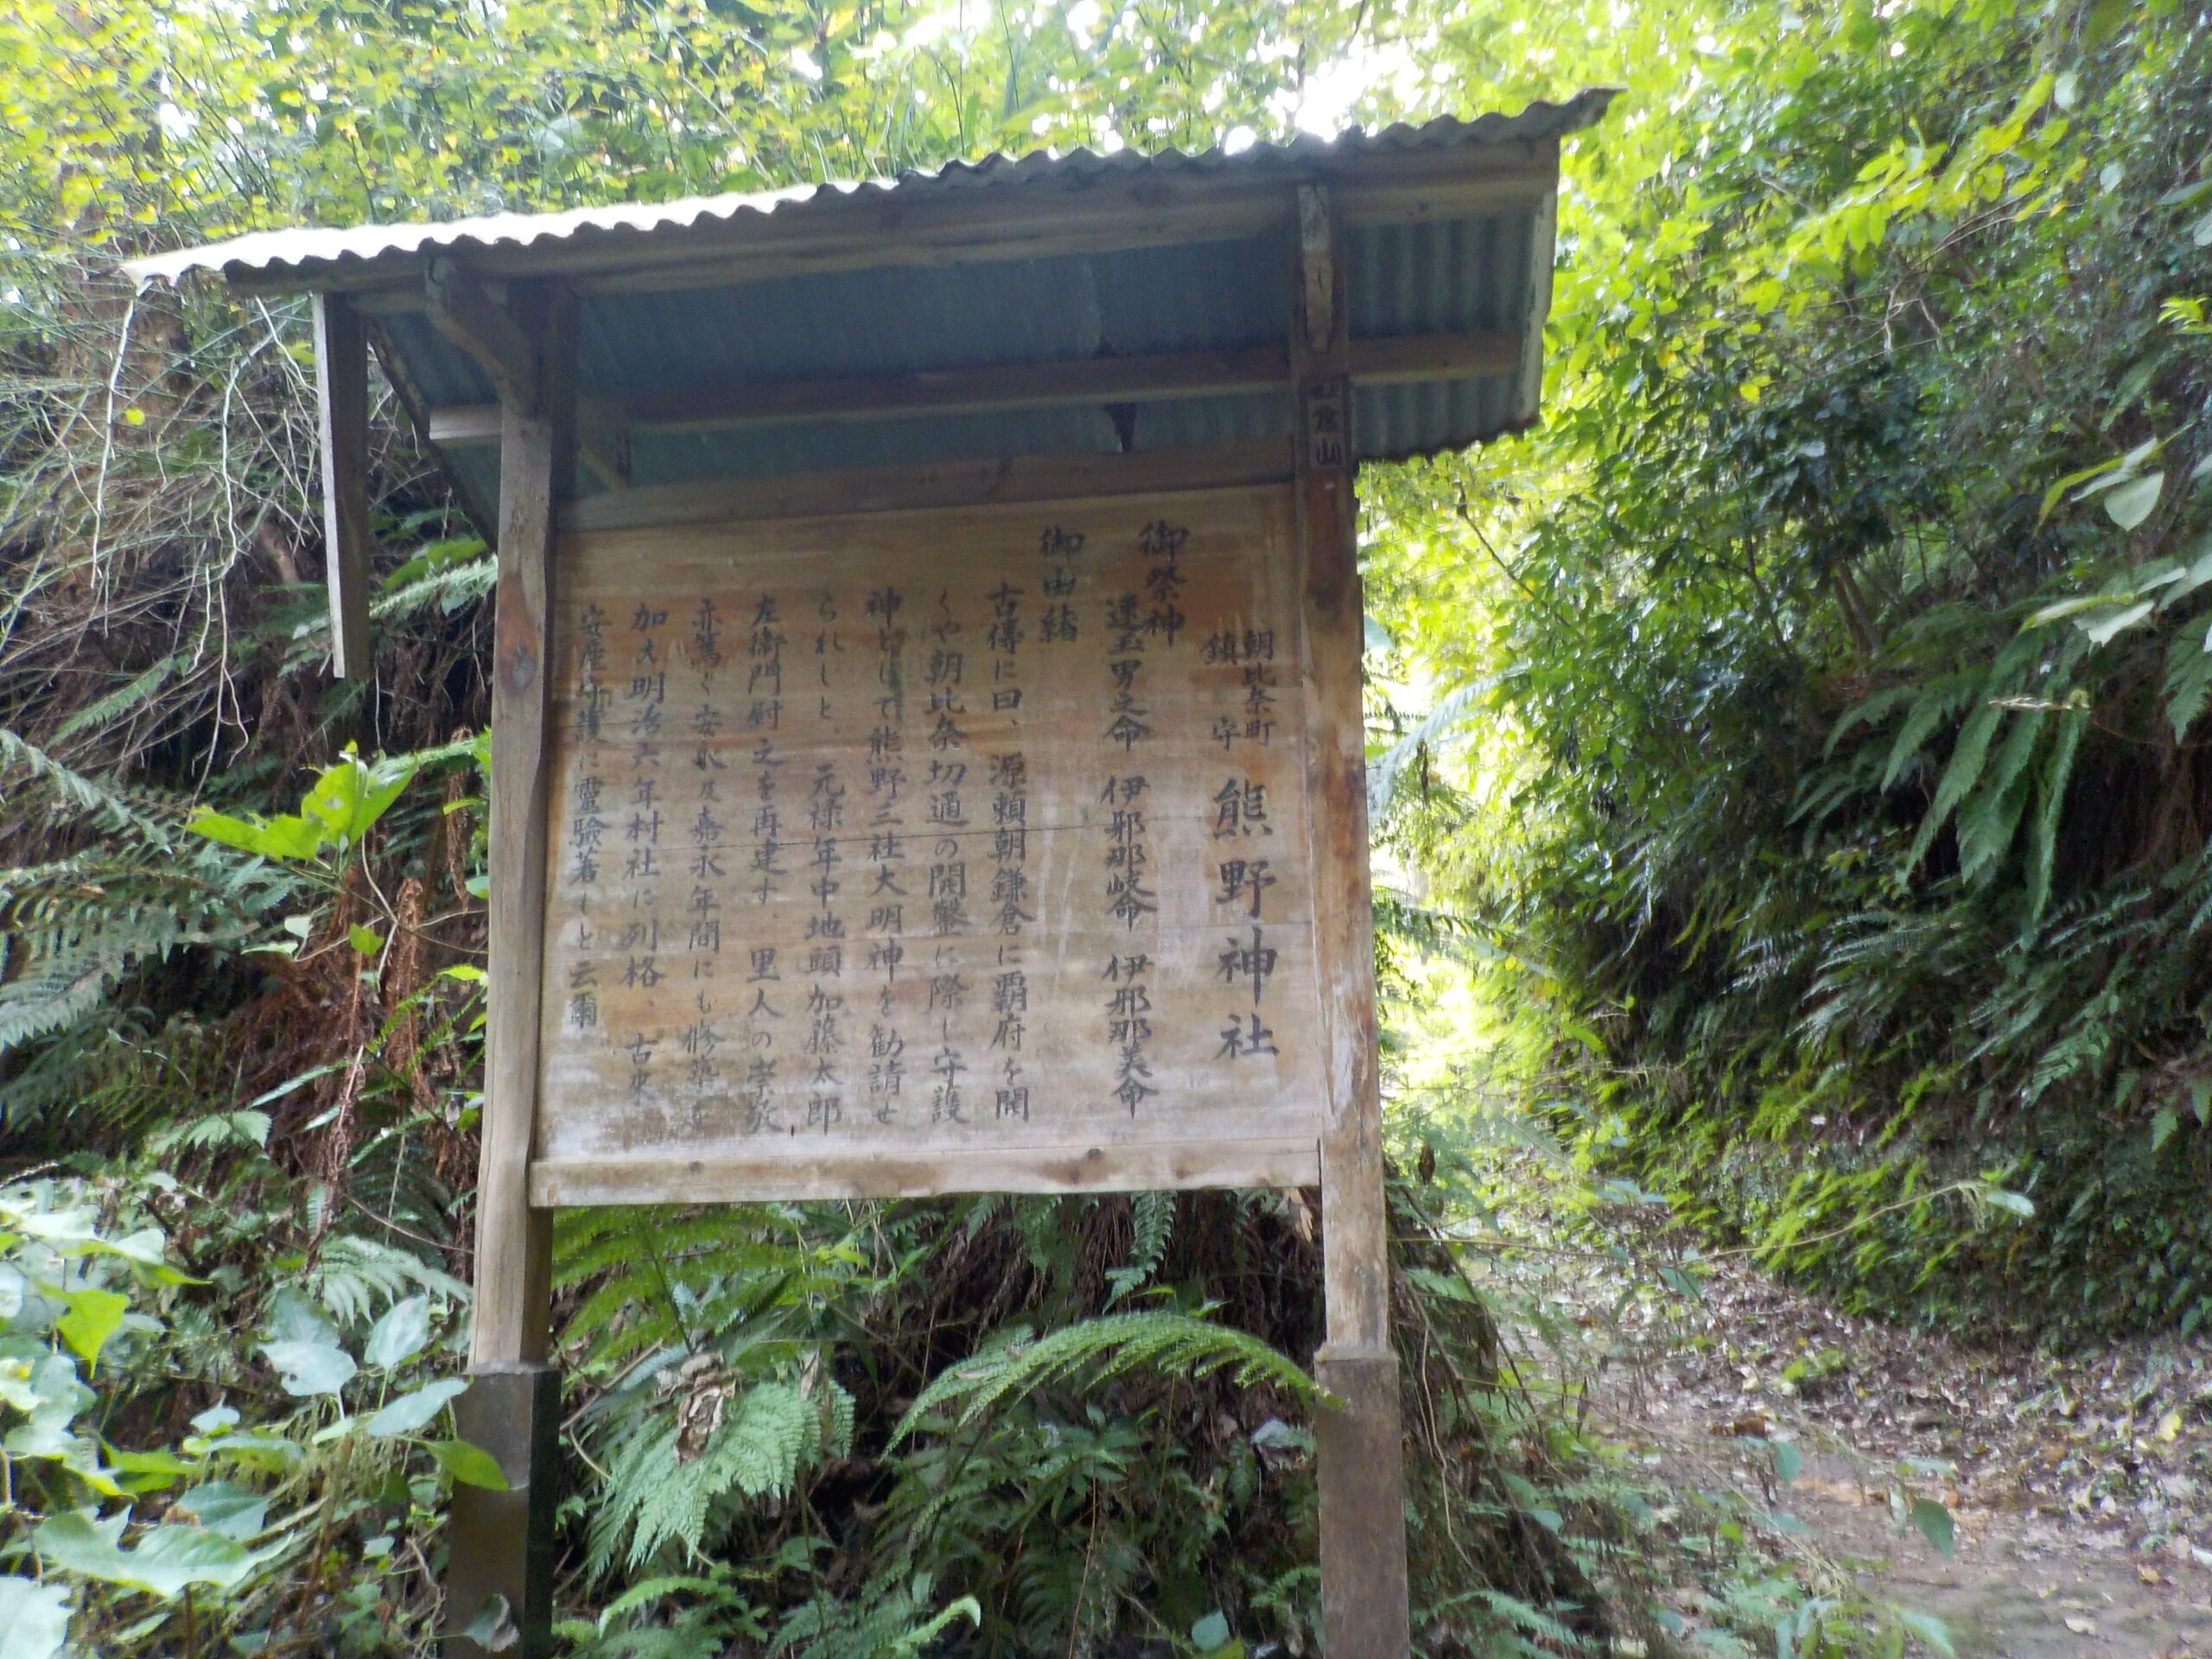 朝比奈町
鎮守 熊野神社
御祭神
速玉男之命 伊邪那岐命 伊邪那美命
御由緒
古傳に曰、源頼朝鎌倉に覇府を開
くや朝比奈切通の開鑿に際し守護
神として熊野三社大明神を勧請せ
られしと、元禄年中地頭加藤太郎
左衛門尉之を再建す、里人の崇敬
亦篤く安永及嘉永年間にも修築を
加え明治六年村社に列格、古来
安産守護に霊験著しと云爾